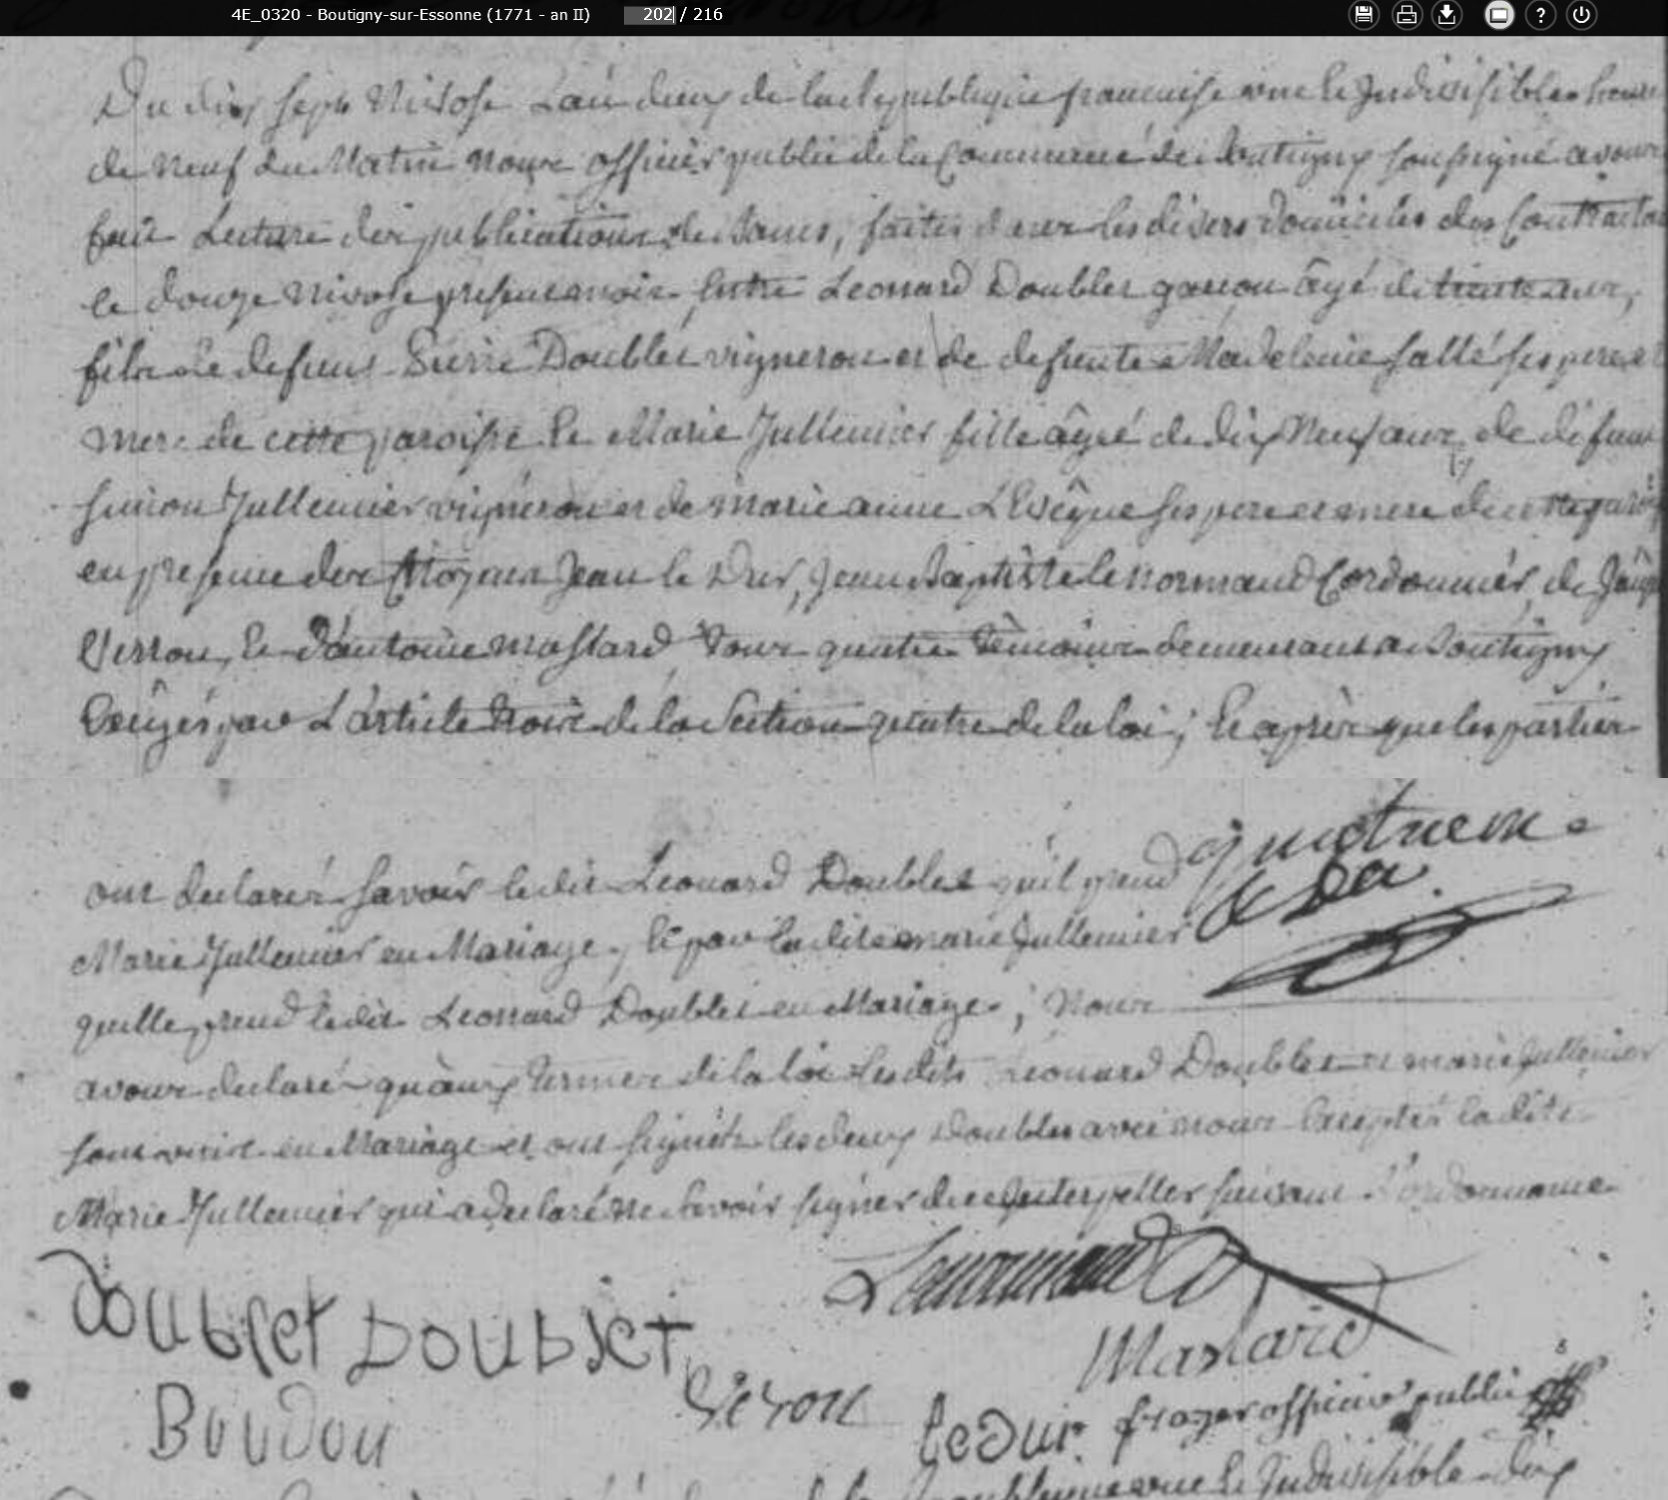 4E_0320 - Boutigny-sur-Essonne (1771 - an II) 202 / 216
Du dix sept Nivose L'an deux de la Republique francaise une Et Indivisible heure
de neuf du Matin nous officier public de la Commune de Boutigny soussigné avons
fait Lecture des publications de bans, faites dans les divers domiciles des Contractans
le douze nivose present mois, Entre Leonard Doublet garcon âgé de trente ans,
fils de defunt Pierre Doublet vigneron et de defunte Madeleine sallé ses pere et
mere de cette paroisse Et Marie Jullemier fille âgée de dix Neuf ans, de defunt
simon Jullemier vigneron et de marie anne L'Evêque ses pere et mere de cette paroisse
en presence des Citoyens Jean le Dur, Jean Baptiste le normand Cordonnier, de
Verron, Et d'antoine mastard tous quatre témoins demeurans a Boutigny
Exigés par L'article trois de la Section quatre de la loi; Et après que les parties
ont declarés savoir ledit Leonard Doublet qu'il prend
Marie Jullemier en Mariage, Et par ladite marie Jullemier
quelle prend ledit Leonard Doublet en Mariage; Nous
avons declaré qu'aux termes de la loi Lesdits Leonard Doublet et marie Jullemier
sont unis en Mariage et ont signés les deux Doublet avec nous Exeptés ladite
Marie Jullemier qui a declaré ne savoir signer de ce Interpeller suivant L'ordonnance
Lenormand
doublet Doublet
Mastard
Veron
Boudou
leDur frager officier public
Republique une Et Indivisible dix